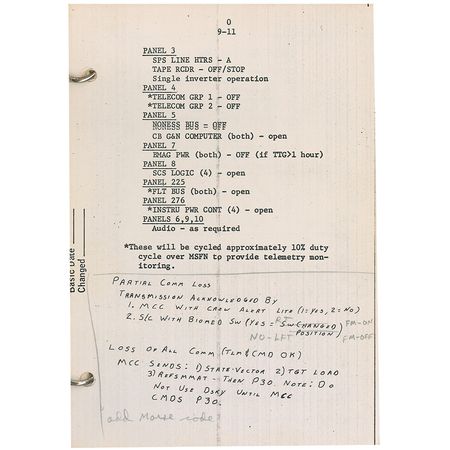 0
9-11
PANEL 3
SPS LINE HTRS - A
TAPE RCDR - OFF/STOP
Single inverter operation
PANEL 4
*TELECOM GRP 1 - OFF
*TELECOM GRP 2 - OFF
PANEL 5
NONESS BUS = OFF
CB G&N COMPUTER (both) - open
PANEL 7
BMAG PWR (both) - OFF (if TTG>1 hour)
PANEL 8
SCS LOGIC (4) - open
PANEL 225
*FLT BUS (both) - open
PANEL 276
*INSTRU PWR CONT (4) - open
PANELS 6,9,10
Audio - as required
*These will be cycled approximately 10% duty
cycle over MSFN to provide telemetry mon-
itoring.
Basic Date
Changed
PARTIAL COMM LOSS
TRANSMISSION ACKNOWLEDGED BY
1. MCC WITH CREW ALERT LITE (1=YES, 2=NO)
2. S/C WITH BIOMED SW (YES = RT SW CHANGED POSITION) FM-ON
NO-LFT FM-OFF
LOSS OF ALL COMM (TLM & CMD OK)
MCC SENDS: 1) STATE-VECTOR 2) TGT LOAD
3) REFSMMAT - THEN P30. NOTE: DO
NOT USE DSKY UNTIL MCC
CMDS P30.
"add Morse code"